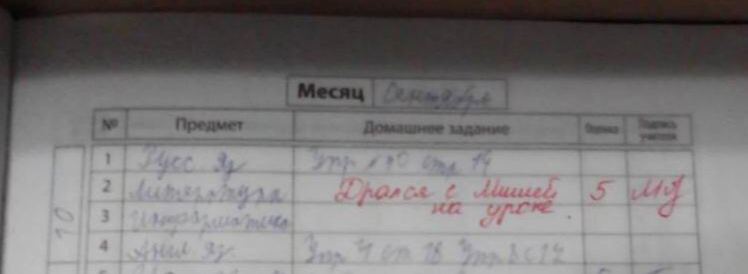 Месяц Сентябрь
№ Предмет Домашнее задание Оценка Подпись учителя
1 Русс. яз Упр стр 14
2 Литература Дрался с Мишей 5
на уроке.
3 Информатика
10
4 Англ. яз Упр 4 ст 16 Упр 8 с 17